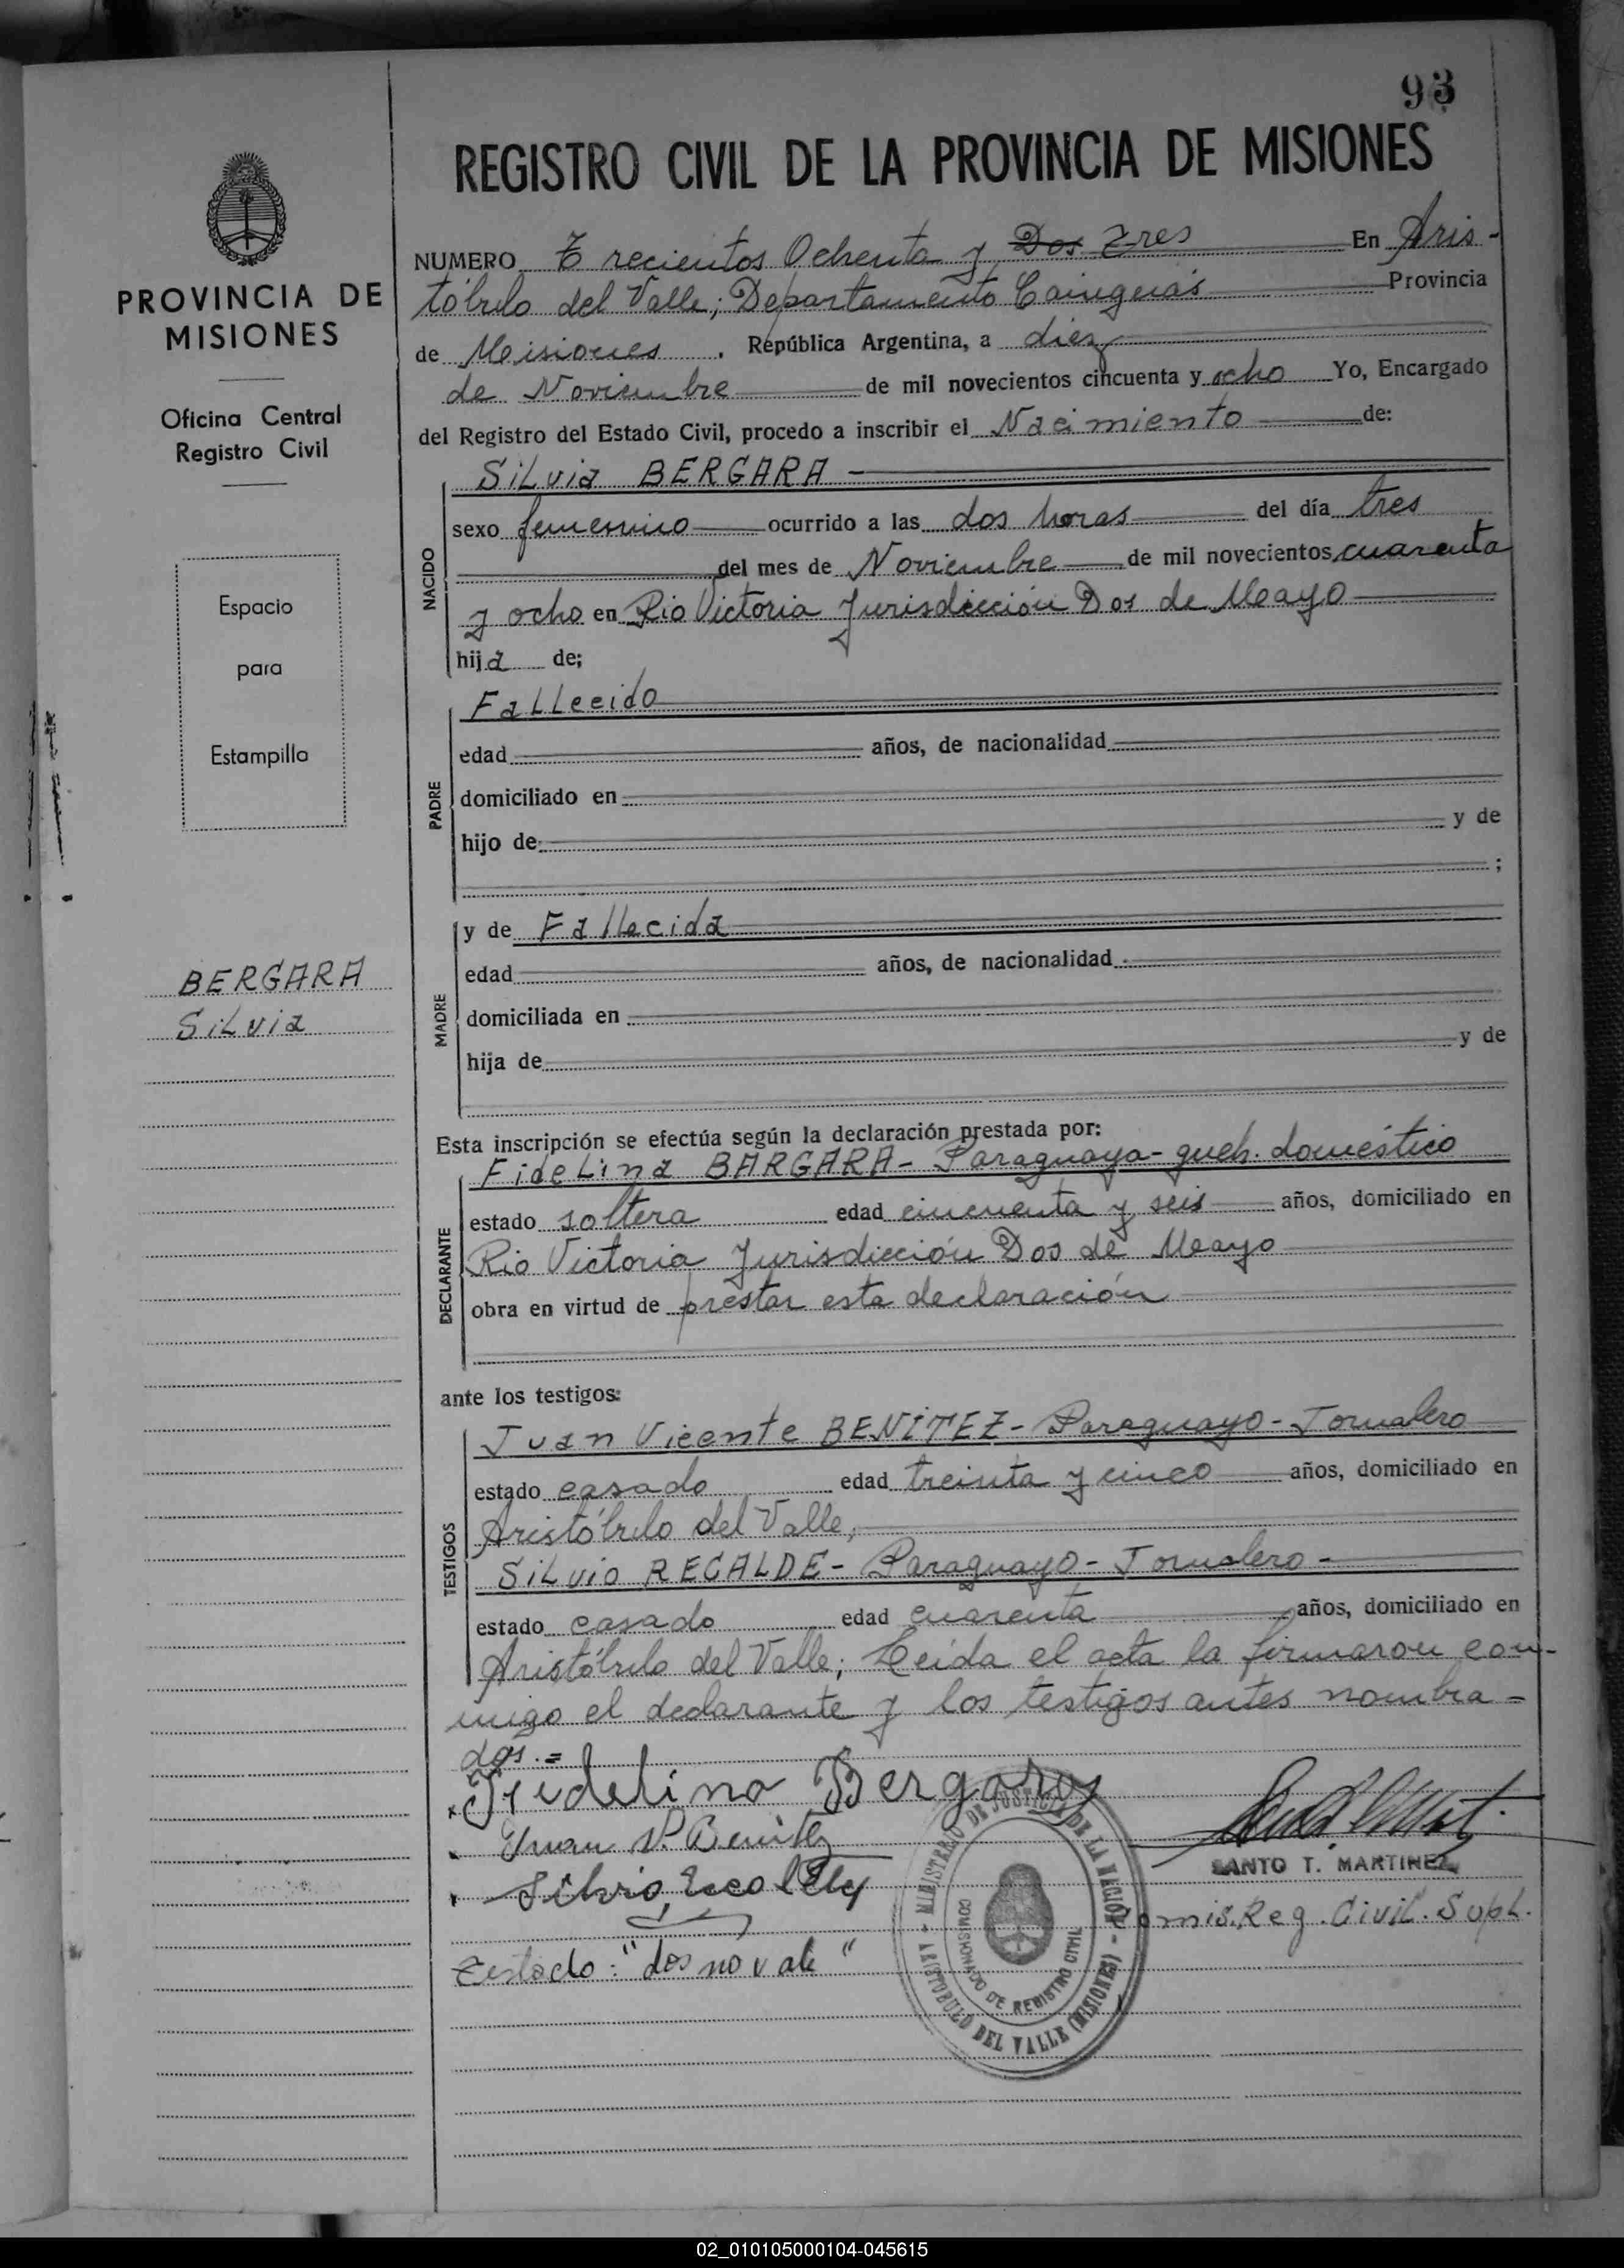 93
REGISTRO CIVIL DE LA PROVINCIA DE MISIONES
NUMERO Trecientos Ochenta y Dos Tres En Aris-
tóbulo del Valle; Departamento Cainguás Provincia
de Misiones . República Argentina, a diez
de Noviembre de mil novecientos cincuenta y ocho Yo, Encargado
del Registro del Estado Civil, procedo a inscribir el Nacimiento de:
NACIDO
Silvia BERGARA
sexo femenino ocurrido a las dos horas del día tres
del mes de Noviembre de mil novecientos cuarenta
y ocho en Rio Victoria Jurisdicción Dos de Mayo
hija de;
PADRE
Fallecido
edad años, de nacionalidad
domiciliado en
hijo de: y de
;
MADRE
y de Fallecida
edad años, de nacionalidad
domiciliada en
hija de y de
Esta inscripción se efectúa según la declaración prestada por:
DECLARANTE
Fidelina BARGARA - Paraguaya - queh. doméstico
estado soltera edad cincuenta y seis años, domiciliado en
Rio Victoria Jurisdicción Dos de Mayo
obra en virtud de prestar esta declaración
ante los testigos:
TESTIGOS
Juan Vicente BENITEZ - Paraguayo - Jornalero
estado casado edad treinta y cinco años, domiciliado en
Aristóbulo del Valle,
Silvio RECALDE - Paraguayo - Jornalero -
estado casado edad cuarenta años, domiciliado en
Aristóbulo del Valle; Leída el acta la firmaron con-
migo el declarante y los testigos antes nombra-
dos.=
Fidelina Bergara
Juan V. Benitez
Silvio
SANTO T. MARTINEZ
Comis. Reg. Civil. Supl.
Testado: "dos no vale"
MINISTERIO DE JUSTICIA DE LA NACIÓN - ARISTOBULO DEL VALLE (MISIONES)
COMISIONADO DE REGISTRO CIVIL
PROVINCIA DE
MISIONES
Oficina Central
Registro Civil
Espacio
para
Estampilla
BERGARA
Silvia
02_010105000104-045615